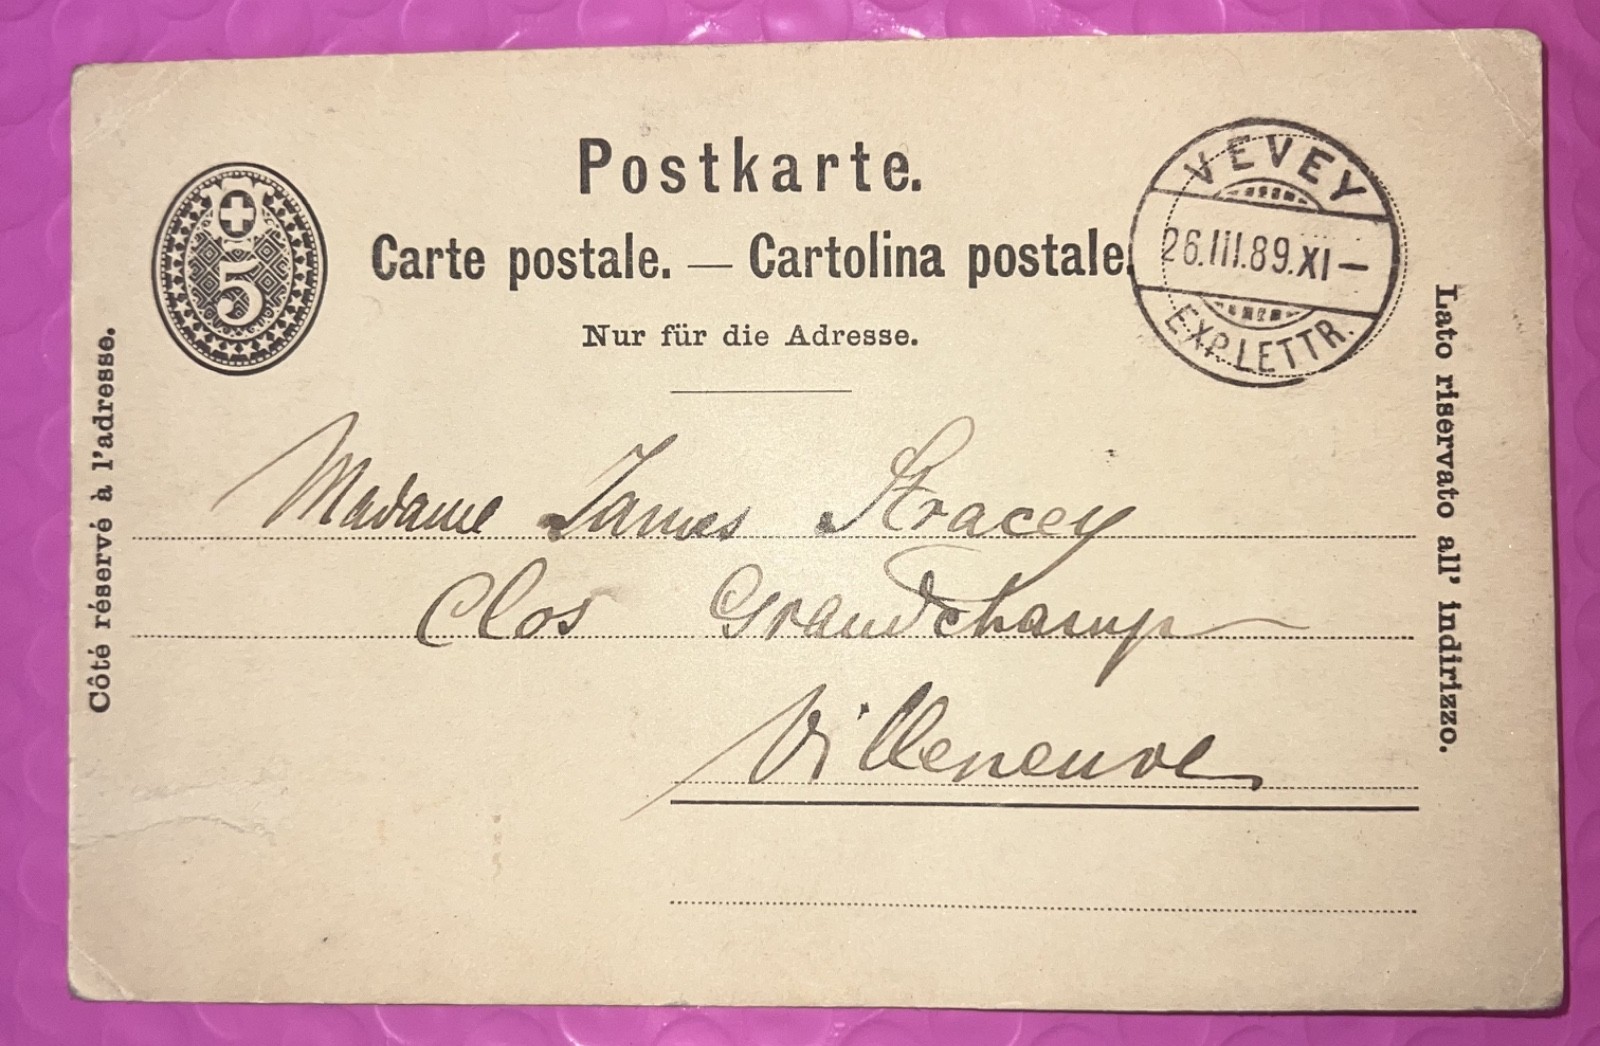 Postkarte.
Carte postale. — Cartolina postale.
Nur für die Adresse.
5
VEVEY
26.III.89.XI—
EXP.LETTR.
Côté réservé à l'adresse.
Lato riservato all' indirizzo.
Madame James Stracey
Clos Grandchamp
Villeneuve